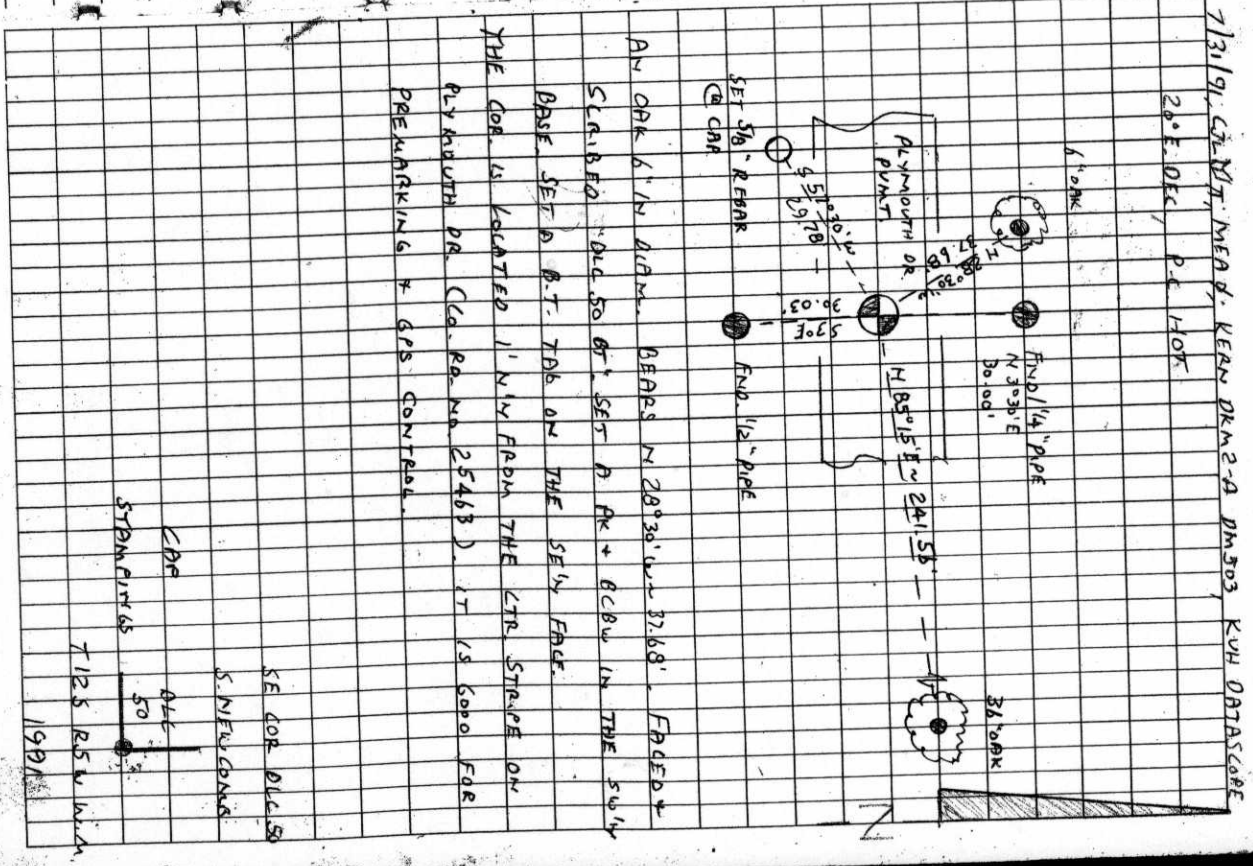 7/31/91, MEAD, KERN DKM2-A DM503, KVH DATASCOPE
20° E. DEC, P.C. HOT
6" OAK
N 28°30' W
37.68'
FND 1 1/4" PIPE
N 3°30' E
30.00'
36" OAK
PLYMOUTH DR
PVMT.
N 85°15' E ~ 241.56'
S 51°30' W
29.78
S 3° E
30.03'
SET 5/8" REBAR
@ CAP
FND. 1/2" PIPE
AN OAK 6" IN DIAM. BEARS N 28°30' W ~ 37.68'. FACED &
SCRIBED "DLC 50 BT". SET A PK & BCBW IN THE SW'LY
BASE. SET A B.T. TAG ON THE SE'LY FACE.
THE COR. IS LOCATED 1' N'LY FROM THE CTR. STRIPE ON
PLYMOUTH DR. (CO. RD. NO. 25463). IT IS GOOD FOR
PREMARKING & GPS CONTROL.
SE COR DLC 50
S. NEWCOMB
CAP
STAMPINGS
DLC
50
T12S R5W W.M.
1991
N